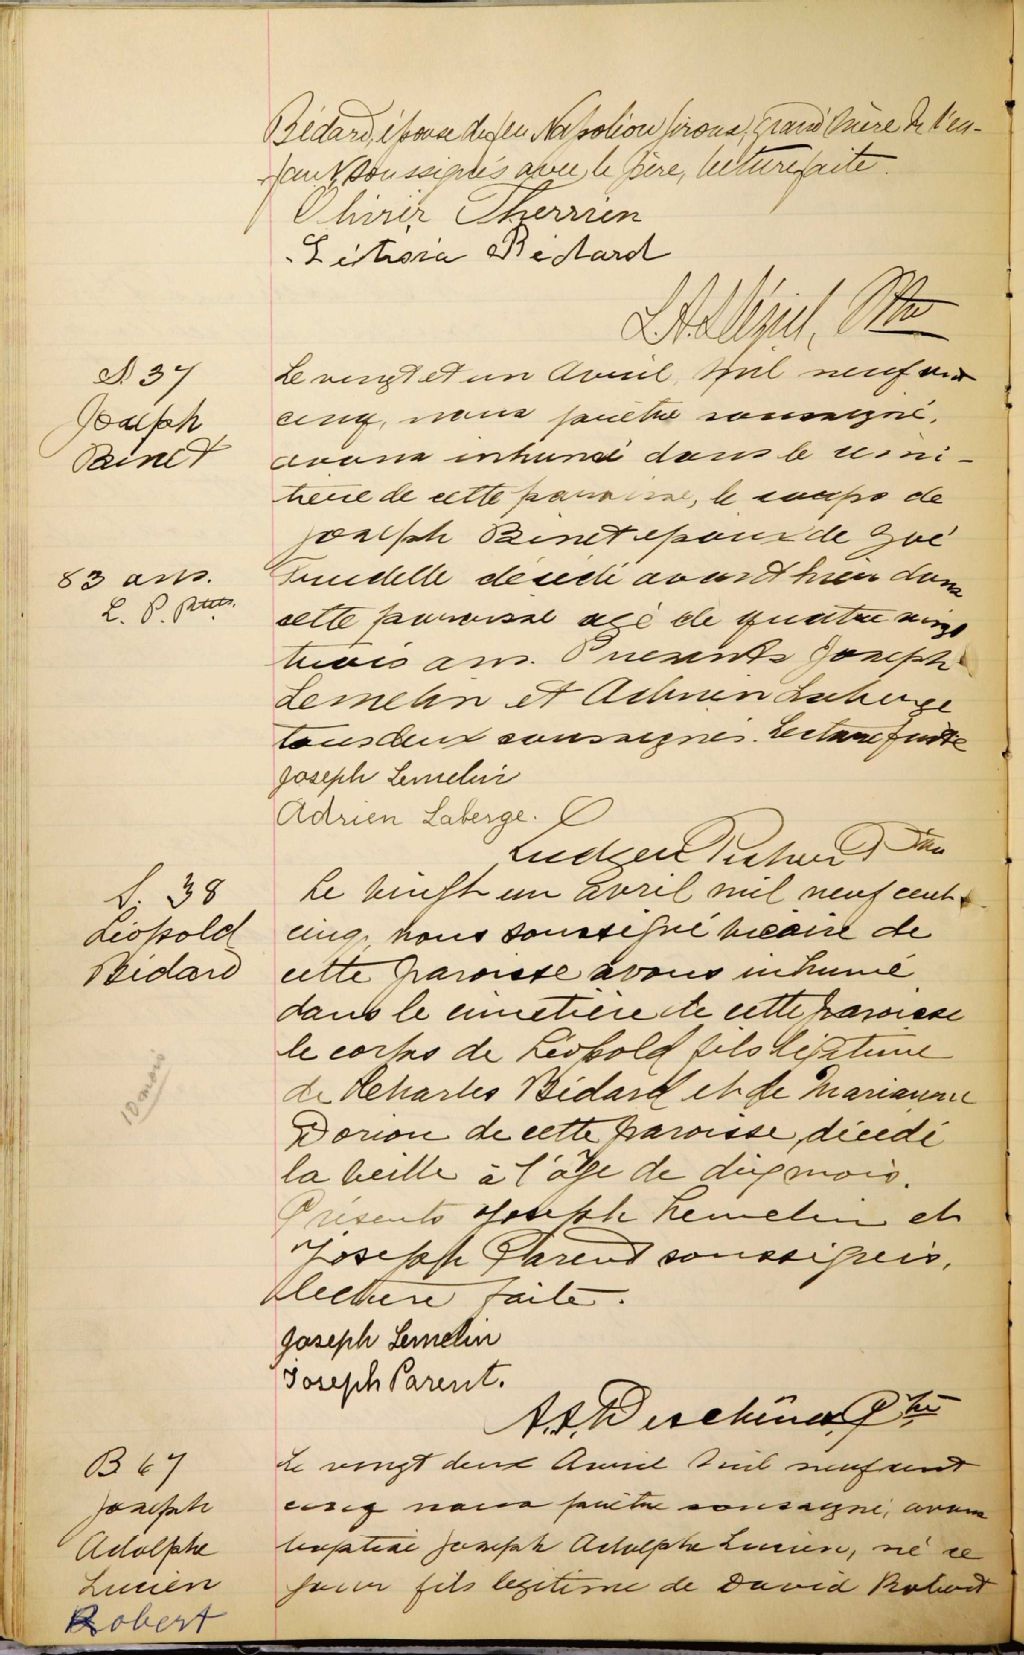 Bédard, épouse de feu Napoléon Giroux, grand'mère de l'en-
fant, soussignés avec le père, lecture faite.
Olivir Therrien
Létisia Bédard
L.A. Ptre
S. 37
Joseph
Binet
83 ans.
Le vingt et un Avril, mil neuf cent
cinq, nous prêtre soussigné,
avons inhumé dans le cimi-
tière de cette paroisse, le corps de
Joseph Binet epoux de Zoé
Trudelle décédé avant hier dans
cette paroisse agé de quatre vingt
trois ans. Presents Joseph
Lemelin et Adrien Laberge
tous deux soussignés. Lecture faite
Joseph Lemelin
Adrien Laberge.
Ptre
S. 38
Léopold
Bédard
10 mois
Le vingt un avril mil neuf cent
cinq, nous soussigné vicaire de
cette paroisse avons inhumé
dans le cimetière de cette paroisse
le corps de Léopold fils légitime
de Charles Bédard et de Marianne
Dorion de cette paroisse, décédé
la veille à l'âge de dix mois.
Présents Joseph Lemelin et
Joseph Parent soussignés,
lecture faite.
Joseph Lemelin
Joseph Parent.
A.A. Deschênes, Ptre
B 67
Joseph
Adolphe
Lucien
Robert
Le vingt deux Avril mil neuf cent
cinq nous prêtre soussigné, avons
baptisé Joseph Adolphe Lucien, né ce
jour fils legitime de David Robert